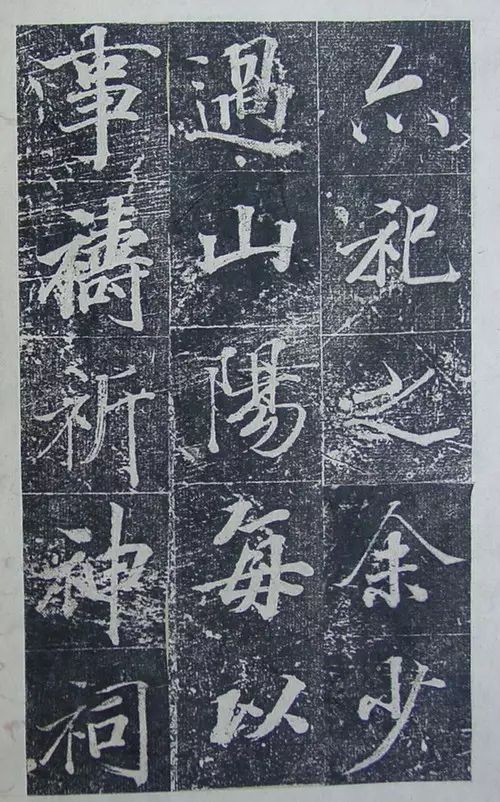 亦祀之余少
過山陽每以
事禱祈神祠